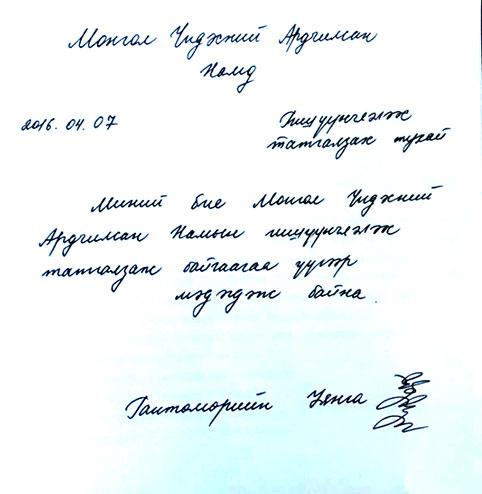 Монгол Үндэсний Ардчилсан
Намд
2016.04.07
Гишүүнчлэлж
татгалзах тухай
Миний бие Монгол Үндэсний
Ардчилсан Намын гишүүнчлэлж
татгалзаж байгаагаа үүгээр
мэдэгдэж байна.
Гантөмөрийн Уянга